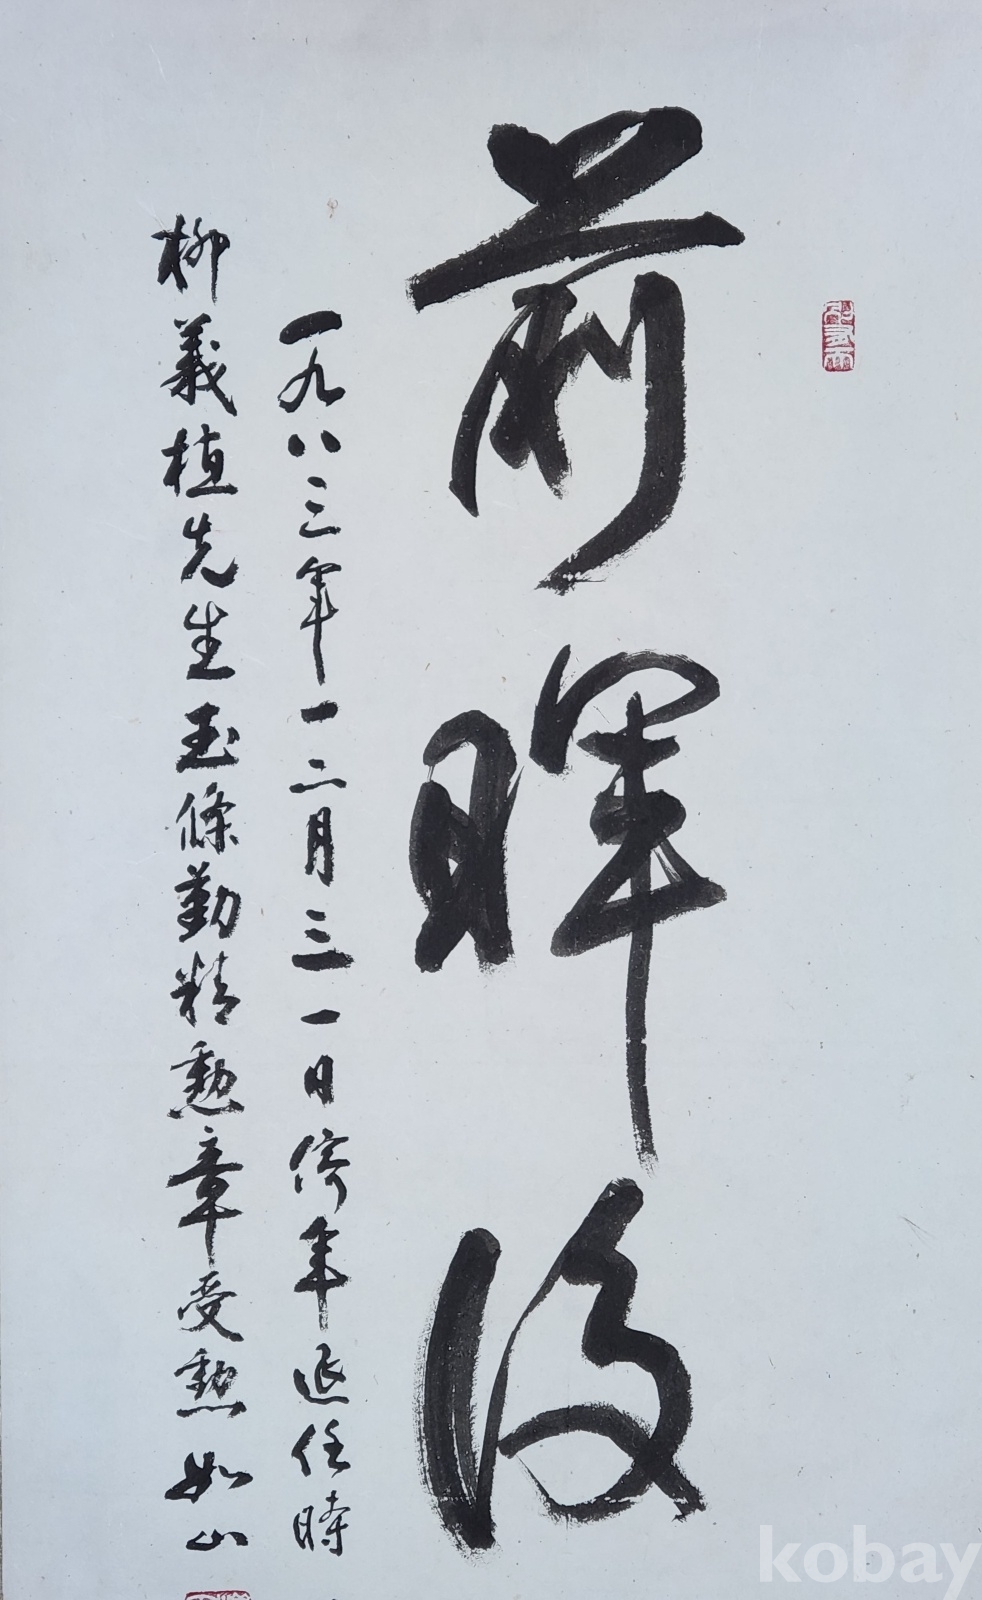 前暉後
一九八三年一二月三一日停年退任時
柳義植先生玉條勤精勳章受勳 如山
kobay